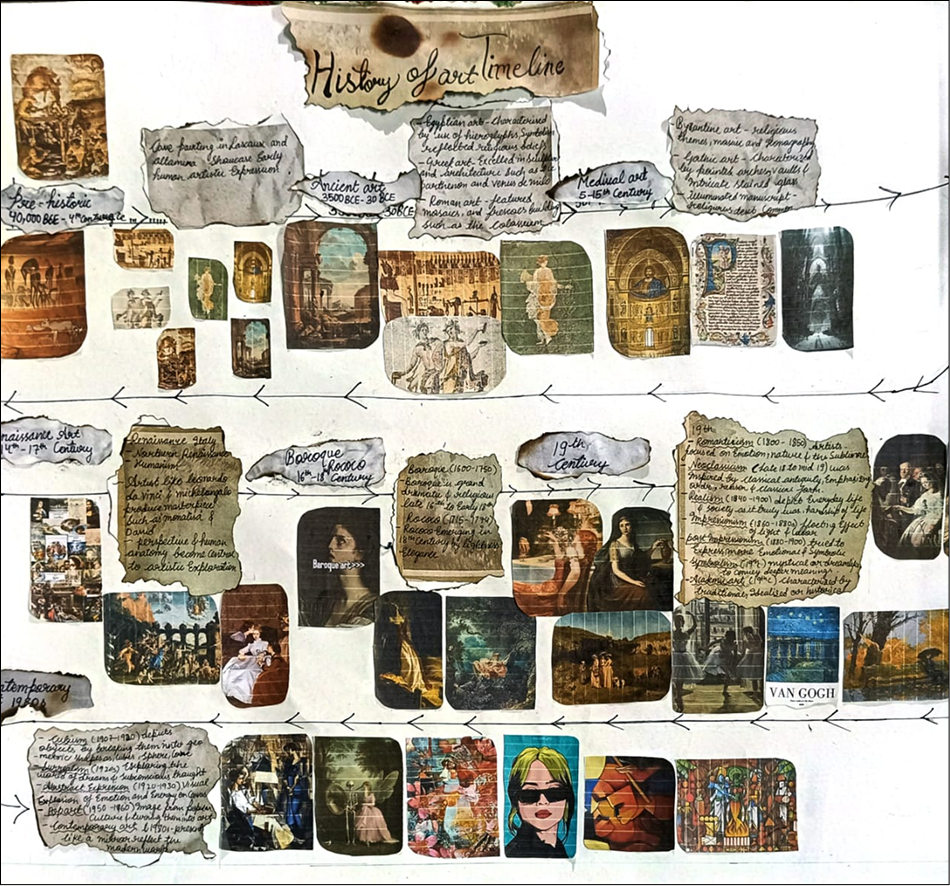 History of art Timeline
Cave painting in Lascaux and
altamira Showcase Early
human artistic Expression.
Pre-historic
40,000 BCE - 4th Century CE
Ancient art
3500 BCE - 30 BCE
30 BCE
- Egyptian art - characterised
by use of hieroglyphs, Symbolism
reflected religious beliefs
- Greek art - Excelled in Sculpture
and architecture such as the
parthenon and venus de milo
- Roman art - features
mosaics, and frescoes building
such as the Colosseum
Medival art
5-15th Century
- Byzantine art - religious
themes, mosaic and Iconography
- Gothic art - Characterized
by pointed arches, vaults &
intricate stained glass
illuminated manuscript -
religious text Common
naissance Art
14th - 17th Century
- Renaissance Italy
- Northern Renaissance
Humanism
- Artists like leonardo
da Vinci & michelangelo
produce masterpiece
such as monalisa &
David
- perspective & human
anatomy become Central
to artistic Exploration
Baroque
& Rococo
16th-18th Century
Baroque art >>>
Baroque (1600-1750)
- Baroque is grand
dramatic & religious
late 16th to Early 18th
- Rococo (1715-1774)
Rococo Emerging in
18th Century by lightness
Elegance
19th
Century
19th
- Romanticism (1800-1850) Artists -
focused on Emotion, nature & the Sublime
- Neoclassism (late 18 to mid 19) was
inspired by classical antiquity, Emphasizing
order, reason & classical form.
- Realism (1840-1900) depicts Everyday life
& society, as it truly was, harshness of life
- Impressionism (1860-1880s) flecting Effect
of light & Colour
- post Impressionism (1880-1900) tried to
Express more Emotional & Symbolic
- Symbolism (19th) mystical or dreamlike
to convey deeper meanings
- Academic art (19th c) characterised by
traditional, Idealised or historical
VAN GOGH
ntemporary
1980s
- Cubism (1907-1920) depicts
objects by breaking them into geo
-metric shapes as cubes, Sphere, cone
- Surrealism (1920s) Exploring the
world of dreams & subconscious thought
- Abstract Expression (1920-1930) Visual
Explosion of Emotion and Energy on Canvas
- Popart (1950-1960) Image from popular
Culture & turned them into art
- Contemporary art (1980s - present)
like a mirror reflect the
modern world